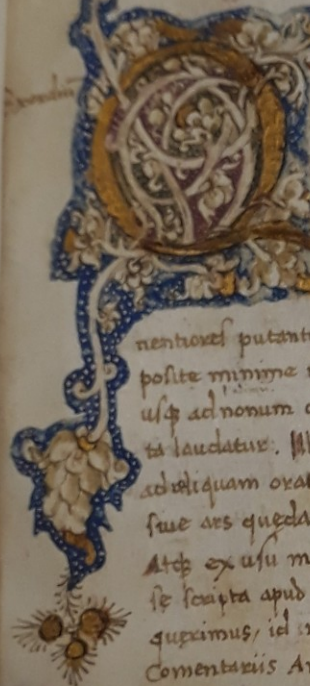 Q
nentiores putant
posite minime
usq; ad nonum
ta laudatur.
ad reliquam orat
siue ars queda
Atq; ex usu m
se scripta apud
querimus, id
Comentariis Ar